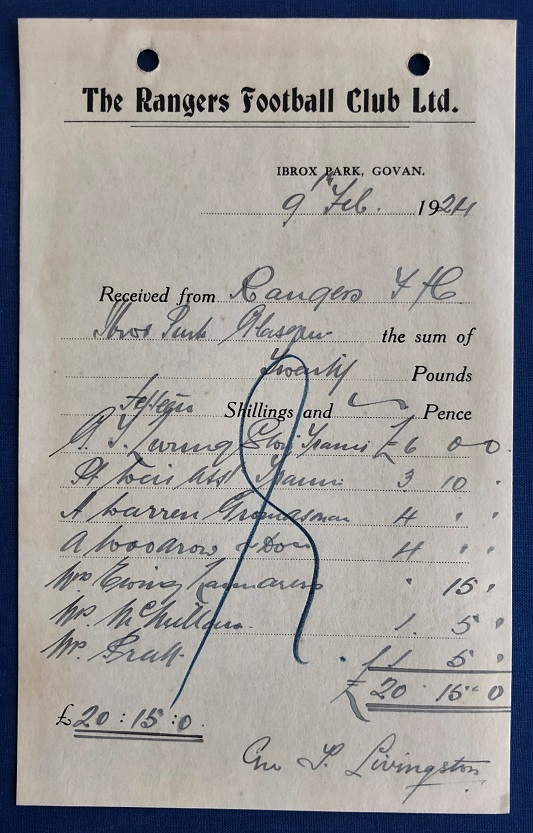 The Rangers Football Club Ltd.
IBROX PARK, GOVAN.
9th Feb. 1924
Received from Rangers F/C
Ibrox Park Glasgow the sum of
Twenty Pounds
Fifteen Shillings and Pence
Trainer £6 0 0.
Asst Trainer 3 10 "
A Warren Groundsman 4 " "
A Woodrow Do 4 " "
Mrs Ewing " 15 "
Mrs McMillan. 1. 5 "
Mrs Bratt. 1 5 "
£ 20 : 15 " 0
£ 20 : 15 : 0.
Geo S. Livingston